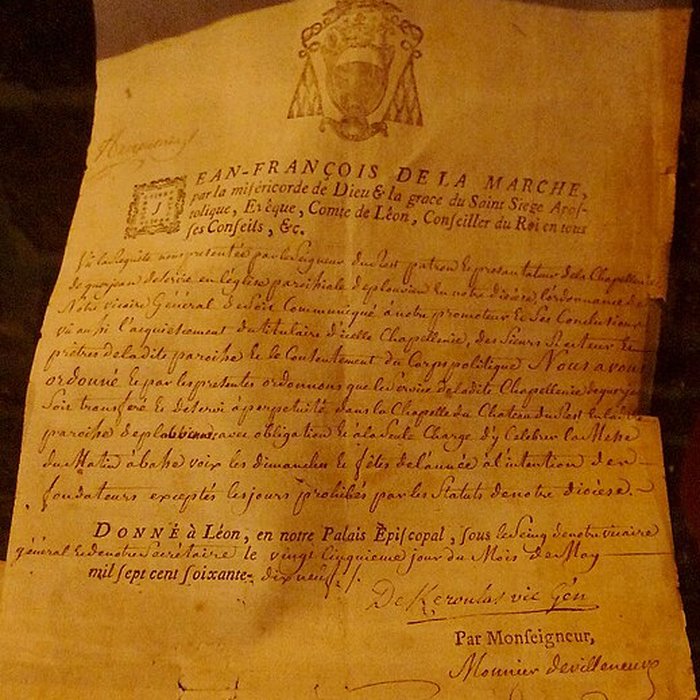 JEAN-FRANÇOIS DE LA MARCHE,
par la miséricorde de Dieu & la grace du Saint Siege Apos-
tolique, Evêque, Comte de Léon, Conseiller du Roi en tous
ses Conseils, &c.
Vû la Requête nous presentée par le Seigneur du Rest patron & presentateur de la Chapellenie
de deservie en l'église paroichiale de plouvien en notre diocèse, l'ordonnance de
Notre vicaire Général de Soit Communiqué à notre promoteur & Ses Conclusions
vû aussi l'acquiescement du titulaire d'icelle Chapellenie, des Sieurs Recteur &
prêtres de la dite paroisse & le Consentement du Corps politique Nous avons
ordonné & par les presentes ordonnons que le Service de la dite Chapellenie de
Soit transferé & deservi à perpetuité dans la Chapelle du Chateau du Rest en la dite
paroisse de plabbenec, avec obligation & à la Seule Charge d'y Celebrer la Messe
du Matin à basse voix les dimanches & fêtes de l'année à l'intention des
fondateurs exceptés les jours prohibés par les Statuts de notre diocèse.
DONNÉ à Léon, en notre Palais Episcopal, sous le Seing de notre vicaire
général & de notre Secrétaire le vingt Cinquieme jour du Mois de May
mil sept cent soixante-dix neuf
De Keroulas vic Gén
Par Monseigneur,
Monnier de villeneuve